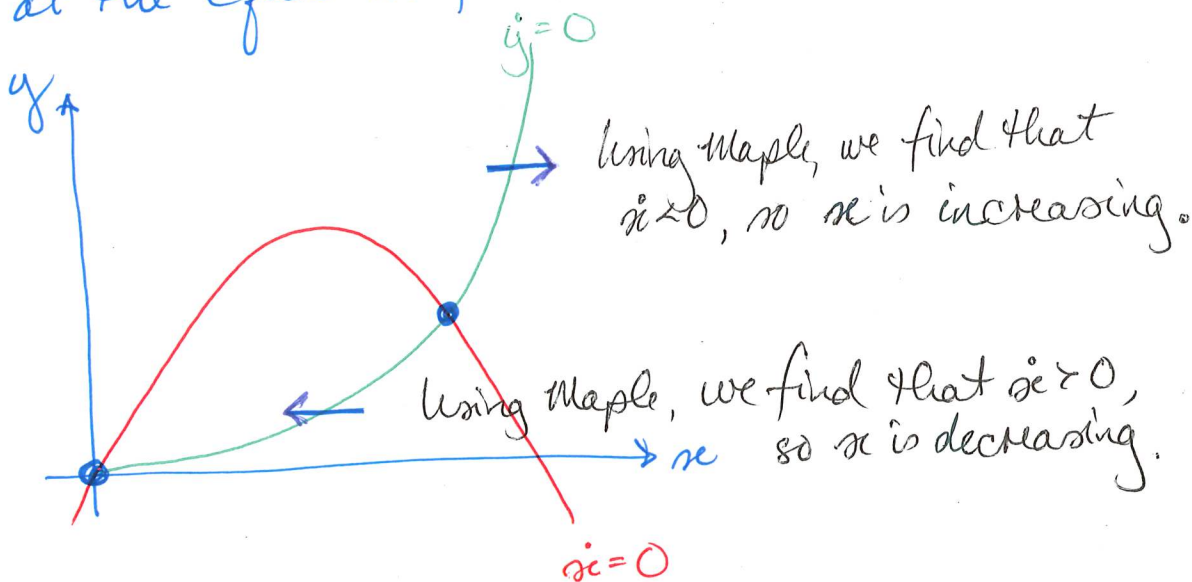 at the
ẏ = 0
y
Using Maple, we find that
ẋ<0, so x is increasing.
Using Maple, we find that ẋ > 0,
x
so x is decreasing.
ẋ = 0